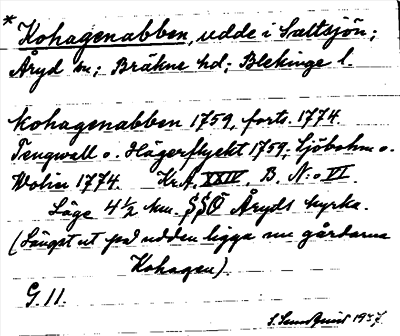 * Kohagenabben, udde i Saltsjön;
Åryd sn; Bräkne hd; Blekinge l.
Kohagenabben 1759, forts. 1774.
Tengwall o. Hägerflyckt 1759, Sjöbohm o.
Wolin 1774. Kr.A. XXIV, B. N:o VI
Läge 4 1/2 km. SSÖ Åryds kyrka.
(Längst ut på udden ligga nu gårdarna
Kohagen).
G. 11.
S. Sundquist 1937.